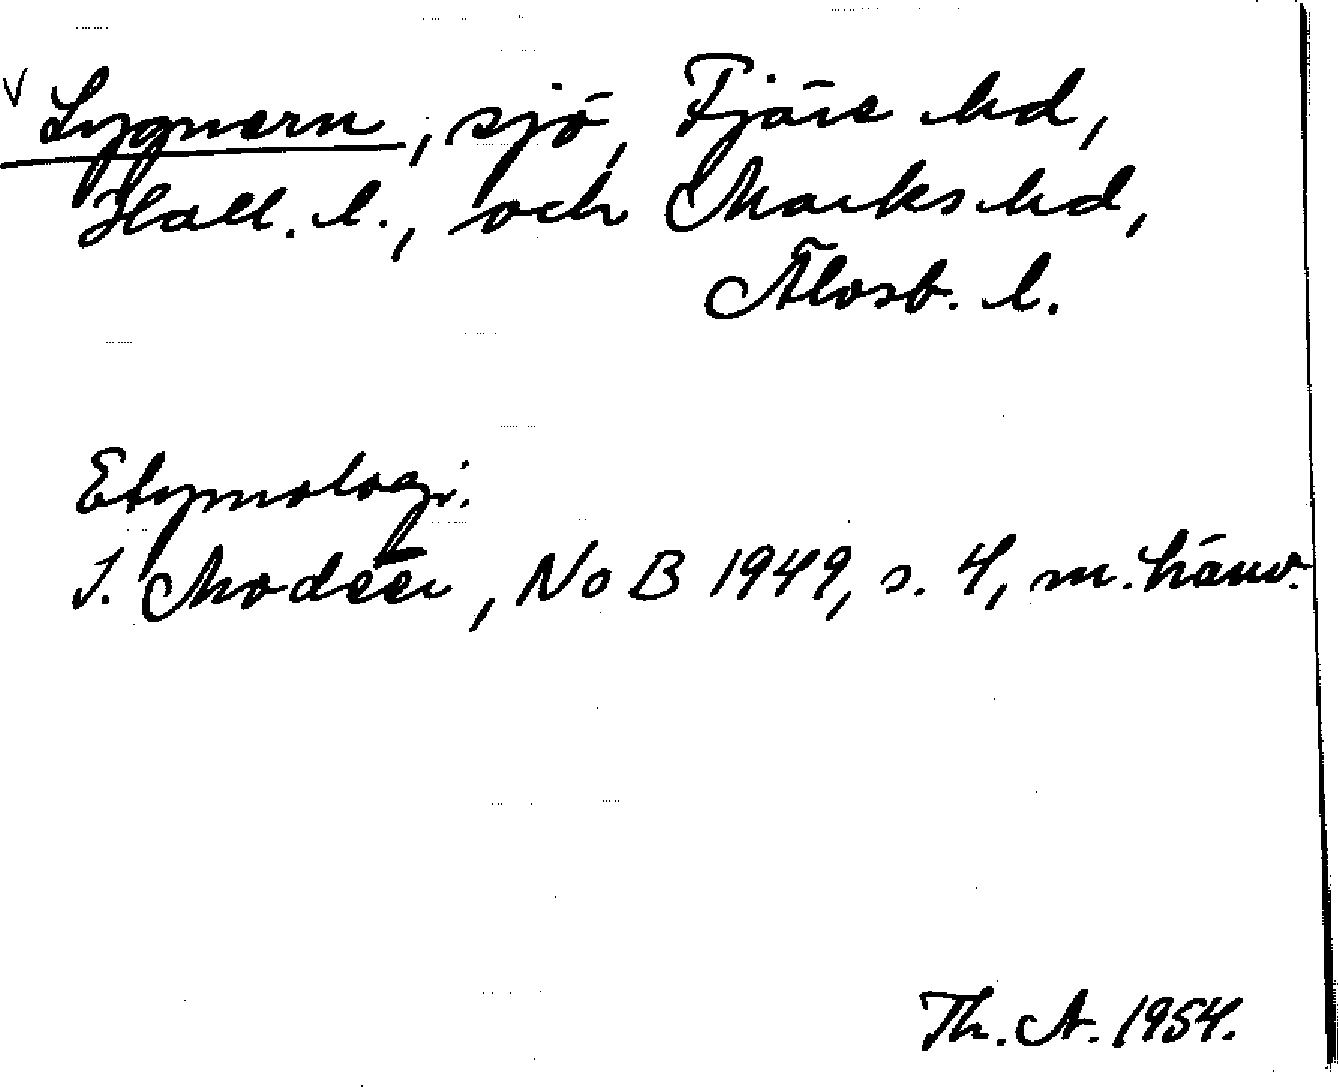 v Lygnern, sjö, Fjäre hd,
Hall. l., och Marks hd,
Älvsb. l.
Etymologi.
I. Modéer, NoB 1949, s. 4, m. hänv.
Th. A. 1954.